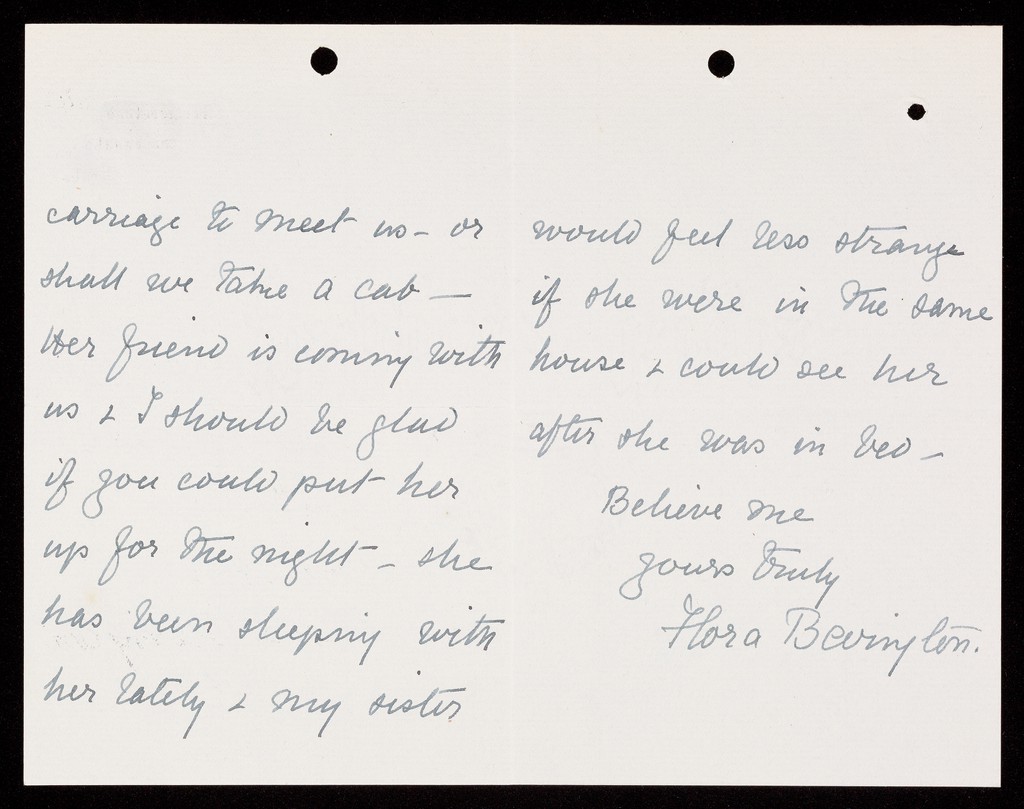 carriage to meet us - or
shall we take a cab —
Her friend is coming with
us & I should be glad
if you could put her
up for the night - she
has been sleeping with
her lately & my sister
would feel less strange
if she were in the same
house & could see her
after she was in bed -
Believe me
yours truly
Flora Bevington.